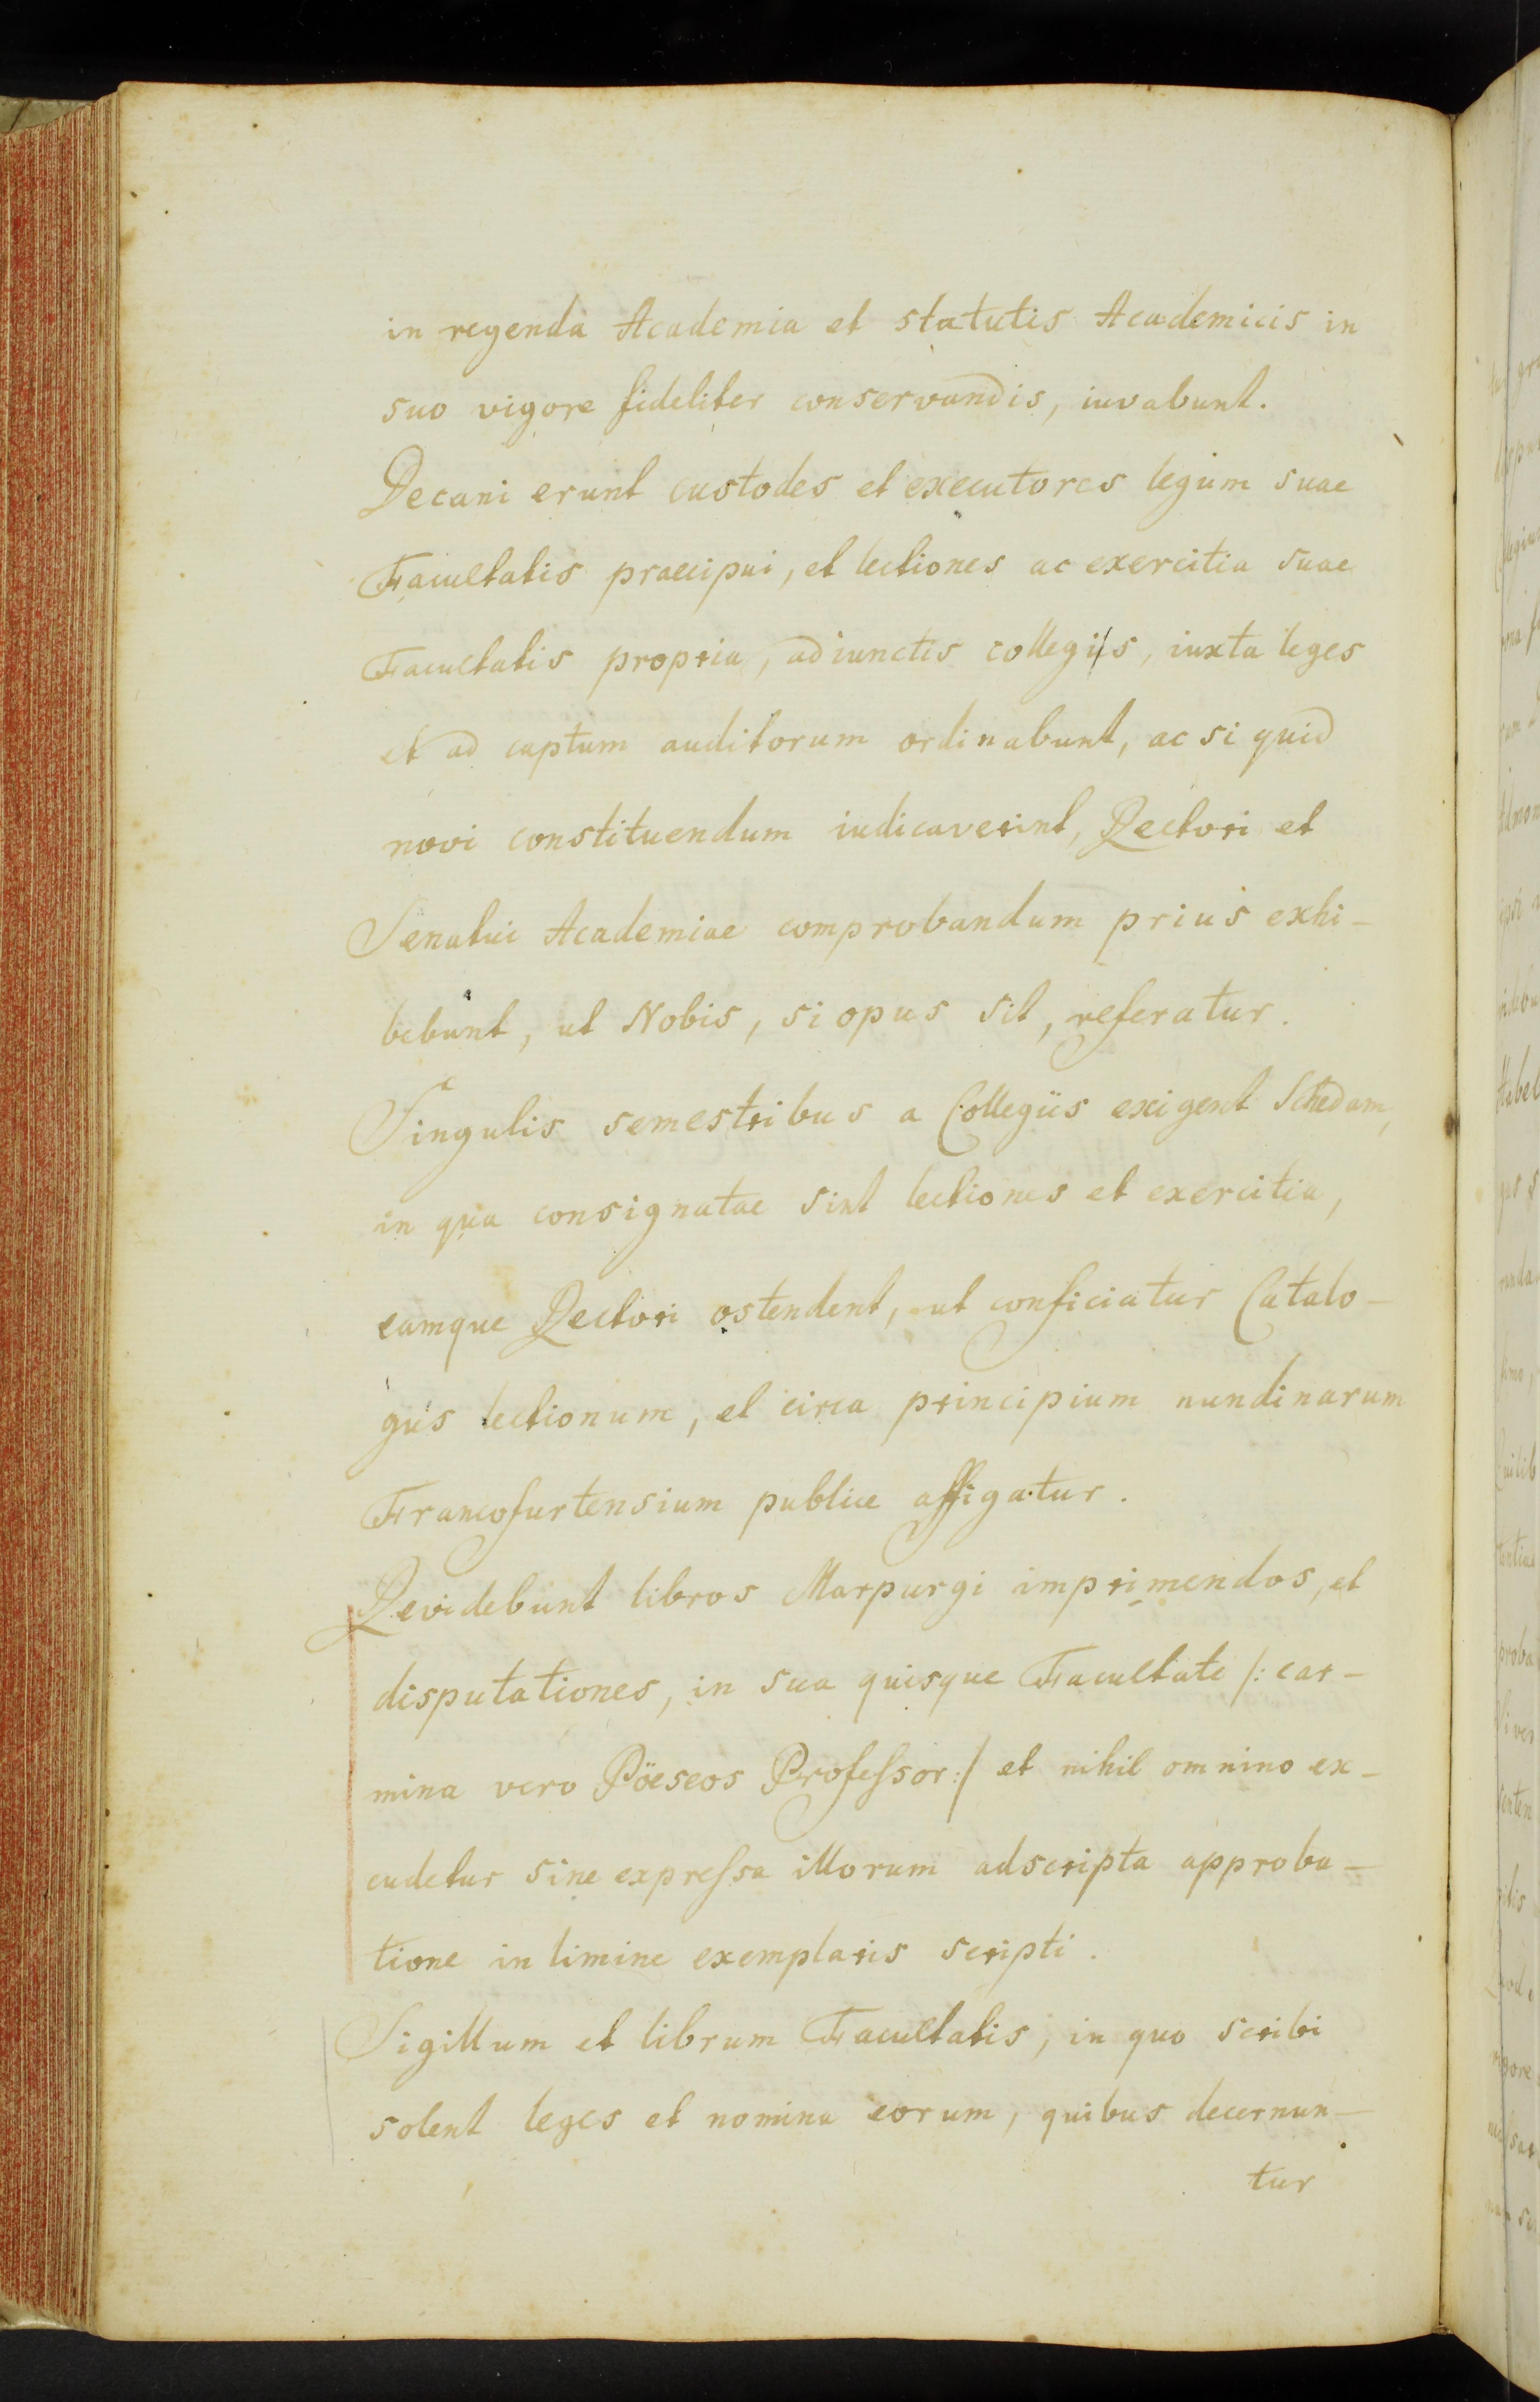 in regenda Academia et statutis Academicis in
suo vigore fideliter conservandis, iuvabunt.
Decani erunt custodes et executores legum suae
Facultatis praecipui, et lectiones ac exercitia suae
Facultatis propria, adiunctis collegiis, iuxta leges
et ad captum auditorum ordinabunt, ac si quid
novi constituendum iudicaverint, Rectori et
Senatui Academiae comprobandum prius exhi-
bebunt, ut Nobis, si opus sit, referatur.
Singulis semestribus a Collegiis exigent Schedam,
in qua consignatae sint lectiones et exercitia,
eamque Rectori ostendent, ut conficiatur Catalo-
gus lectionum, et circa principium nundinarum
Francofurtensium publice affigatur.
Revidebunt libros Marpurgi imprimendos, et
disputationes, in sua quisque Facultate /: car-
mina vero Pöeseos Professor :/ et nihil omnino ex-
cudetur sine expressa illorum adscripta approba-
tione in limine exemplaris scripti.
Sigillum et librum Facultatis, in quo scribi
solent leges et nomina eorum, quibus decernun-
tur